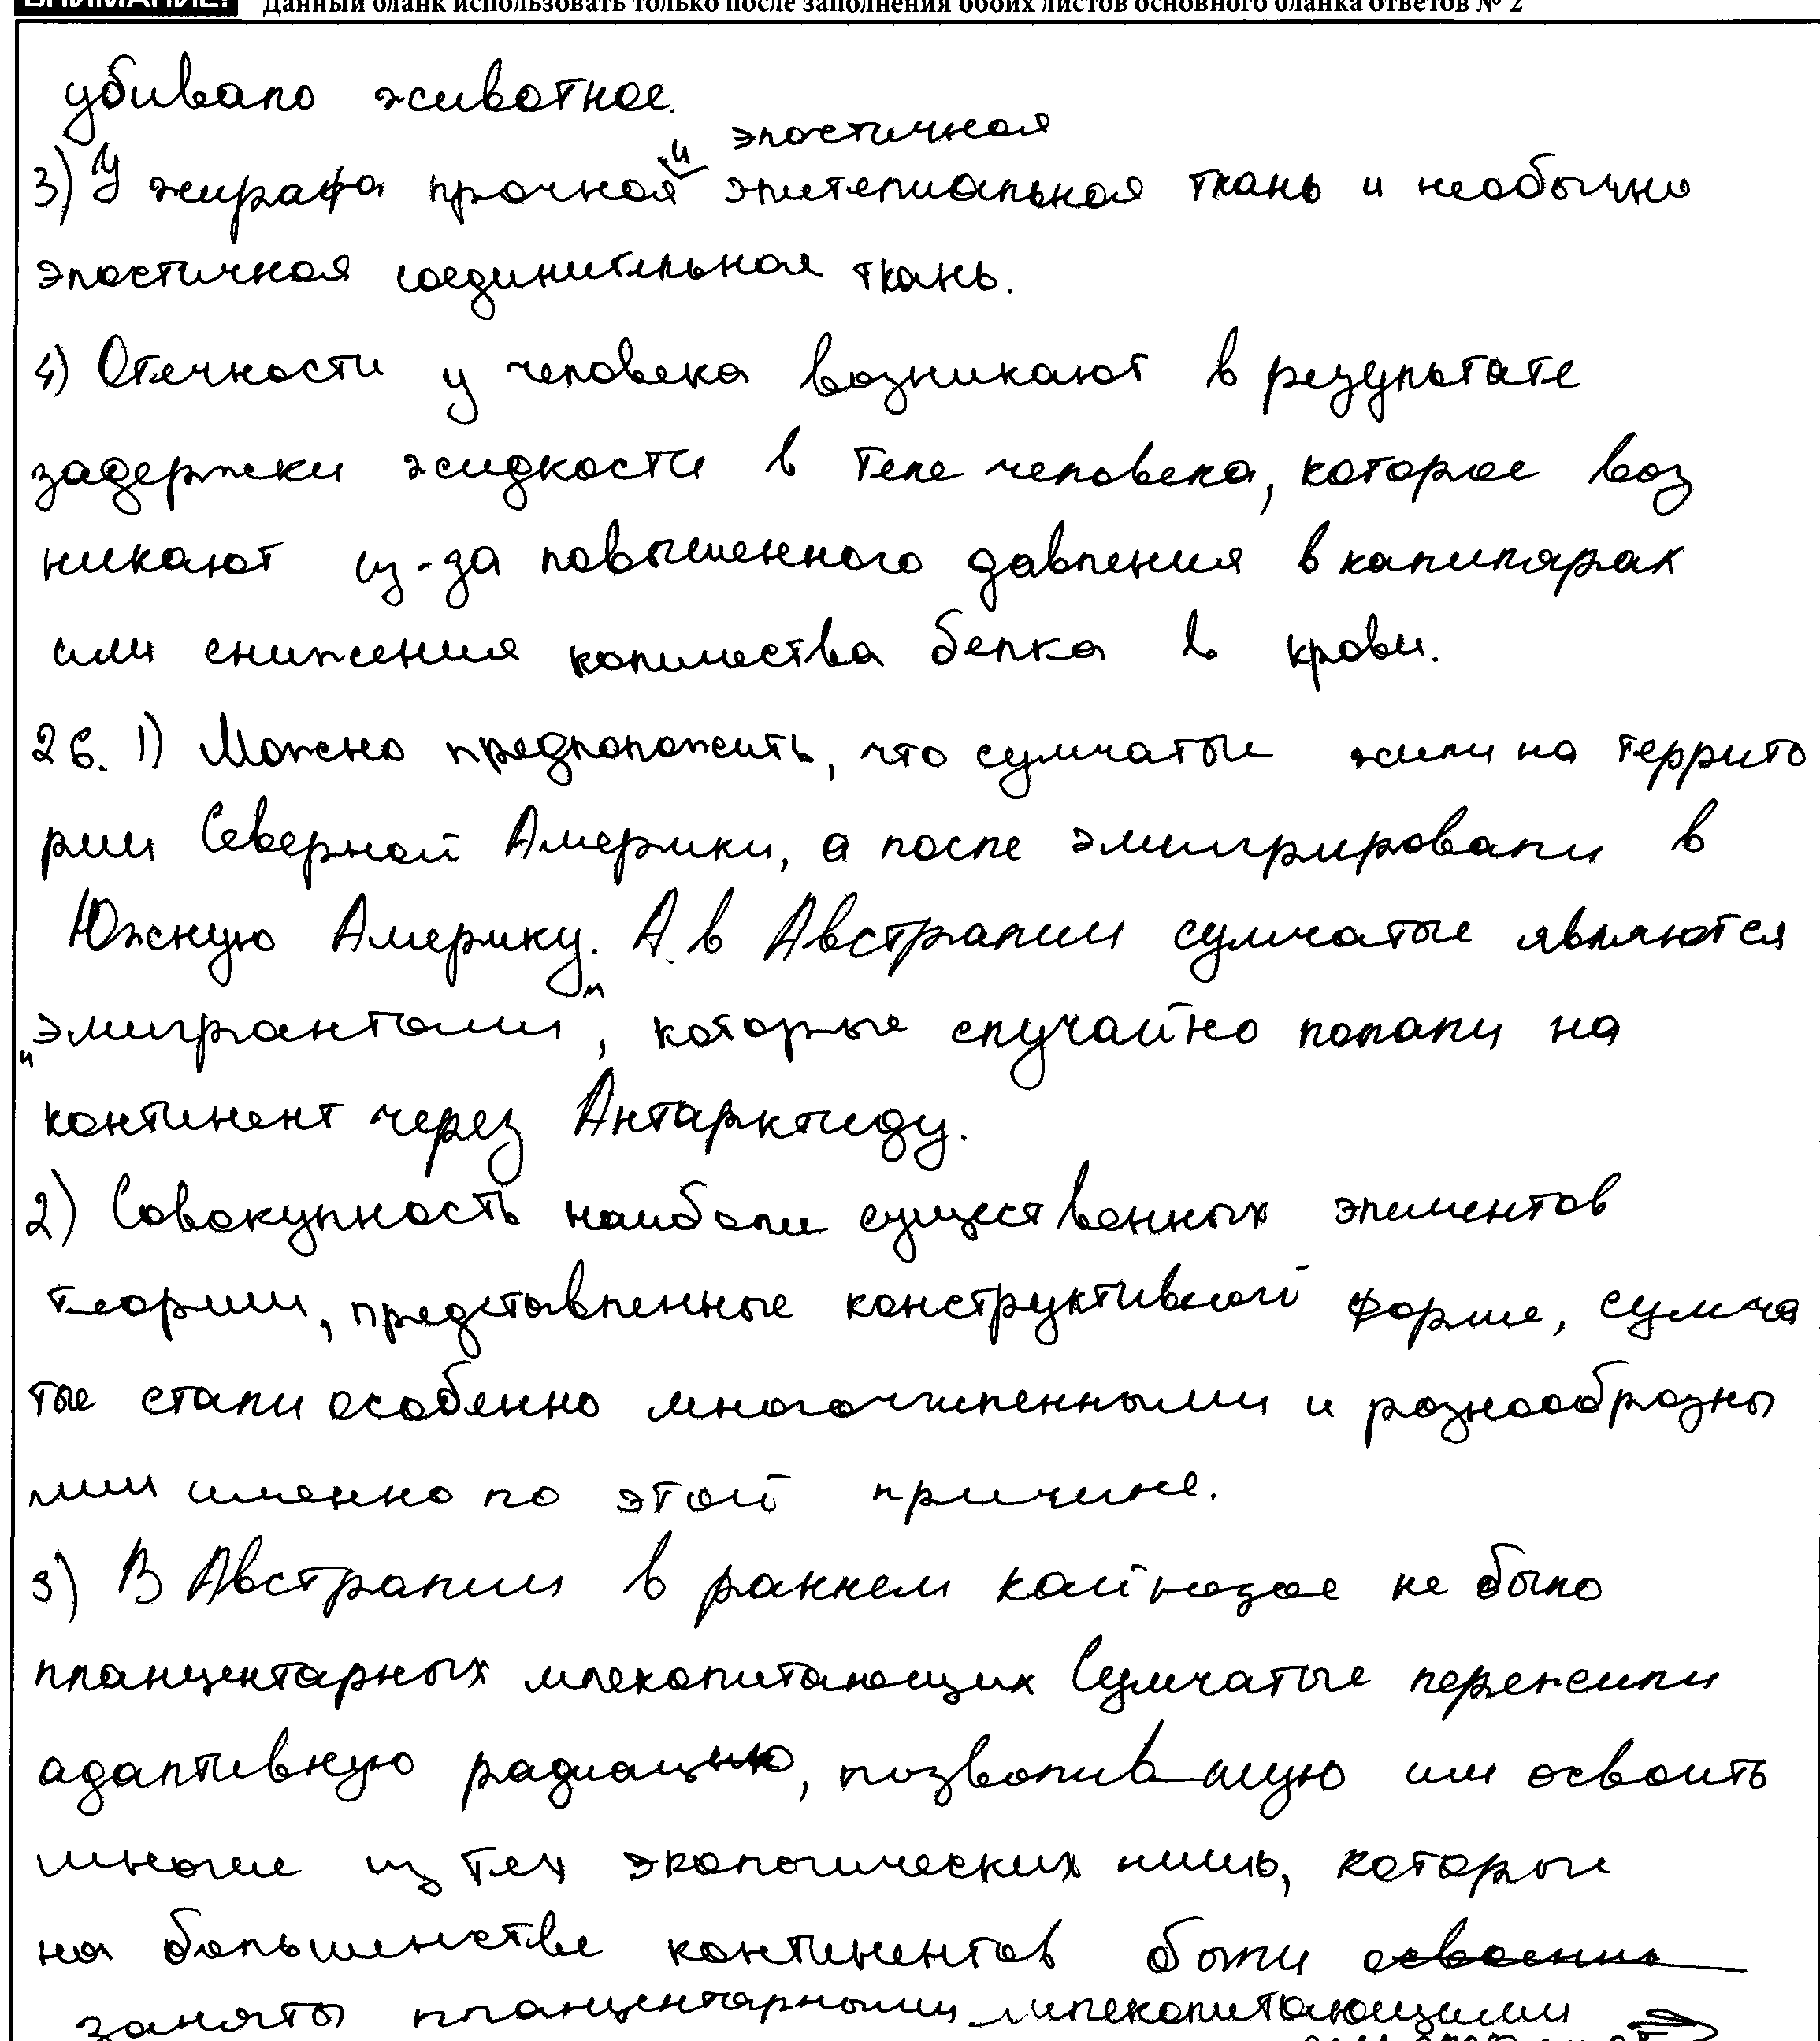 ВНИМАНИЕ! Данный бланк использовать только после заполнения обоих листов основного бланка ответов № 2
убивало животное.
эластичная
3) У жирафа прочная и эпителиальная ткань и необычно
эластичная соединительная ткань.
4) Отечности у человека возникают в результате
задержки жидкости в теле человека, которое воз
никают из-за повышенного давления в капилярах
или снижения количества белка в крови.
26. 1) Можно предположить, что сумчатые жили на террито
рии Северной Америки, а после эмигрировали в
Южную Америку. А в Австралии сумчатые являются
"эмигрантами", которые случайно попали на
континент через Антарктиду.
2) Совокупность наиболе существенных элементов
теории, представленные конструктивной форме, сумча
тые стали особенно многочисленными и разнообразны
ми именно по этой причине.
3) В Австралии в раннем кайнозое не было
планцентарных млекопитающих Сумчатые пережили
адаптивную радиацию, позволившую им освоить
многие из тех экологических нишь, которые
на большинстве континентов были освоены
заняты планцентарными млекопитающими